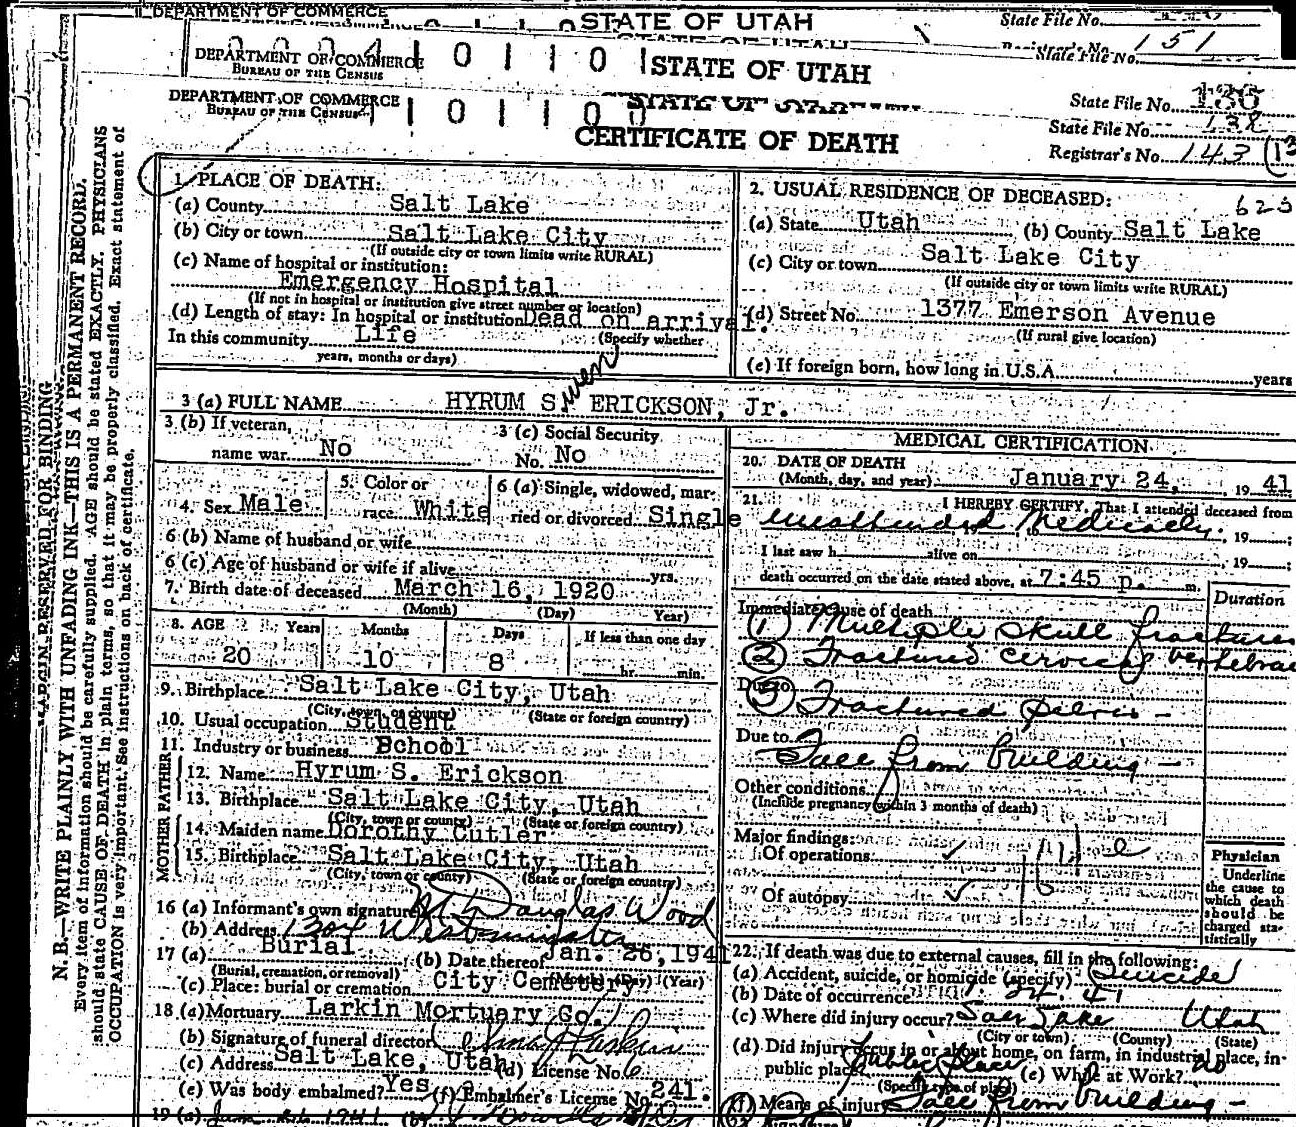 DEPARTMENT OF COMMERCE
STATE OF UTAH
State File No.
151
DEPARTMENT OF COMMERCE
BUREAU OF THE CENSUS
STATE OF UTAH
State File No.
DEPARTMENT OF COMMERCE
BUREAU OF THE CENSUS
State File No.
State File No. 138
CERTIFICATE OF DEATH
Registrar's No. 143
MARGIN RESERVED FOR BINDING
N. B.—WRITE PLAINLY WITH UNFADING INK—THIS IS A PERMANENT RECORD.
Every item of information should be carefully supplied. AGE should be stated EXACTLY. PHYSICIANS
should state CAUSE OF DEATH in plain terms, so that it may be properly classified. Exact statement of
OCCUPATION is very important. See instructions on back of certificate.
1. PLACE OF DEATH:
(a) County Salt Lake
(b) City or town Salt Lake City
(If outside city or town limits write RURAL)
(c) Name of hospital or institution:
Emergency Hospital
(If not in hospital or institution give street number or location)
(d) Length of stay: In hospital or institution Dead on arrival.
In this community Life (Specify whether
years, months or days)
2. USUAL RESIDENCE OF DECEASED:
(a) State Utah (b) County Salt Lake
(c) City or town Salt Lake City
(If outside city or town limits write RURAL)
(d) Street No. 1377 Emerson Avenue
(If rural give location)
(e) If foreign born, how long in U.S.A. years
3 (a) FULL NAME HYRUM S. wen ERICKSON, Jr.
3 (b) If veteran,
name war No
3 (c) Social Security
No. No
4. Sex Male
5. Color or
race White
6 (a) Single, widowed, mar-
ried or divorced Single
6 (b) Name of husband or wife
6 (c) Age of husband or wife if alive yrs.
7. Birth date of deceased March 16, 1920
(Month) (Day) Year)
8. AGE Years Months Days If less than one day
20 10 8 hr. min.
9. Birthplace Salt Lake City, Utah
(City, town, or county) (State or foreign country)
10. Usual occupation Student
11. Industry or business School
FATHER
12. Name Hyrum S. Erickson
13. Birthplace Salt Lake City, Utah
(City, town or county) (State or foreign country)
MOTHER
14. Maiden name Dorothy Cutler
15. Birthplace Salt Lake City, Utah
(City, town or county) (State or foreign country)
16 (a) Informant's own signature Douglas Wood
(b) Address 1304 Westminster
17 (a) Burial (b) Date thereof Jan. 26, 1941
(Burial, cremation, or removal) (Month) (Day) (Year)
(c) Place: burial or cremation City Cemetery
18 (a) Mortuary Larkin Mortuary Co.
(b) Signature of funeral director
(c) Address Salt Lake, Utah (d) License No. 6
(e) Was body embalmed? Yes (f) Embalmer's License No. 241.
19 (a)
MEDICAL CERTIFICATION
20. DATE OF DEATH
(Month, day, and year) January 24, 19 41
21. I HEREBY CERTIFY, That I attended deceased from
unattended Medically. , 19 ;
I last saw h alive on , 19 ;
death occurred on the date stated above, at 7:45 p. m.
Duration
Immediate cause of death
(1) Multiple skull fractures
(2) Fractured cervical vertebrae
Due to
(3) Fractured pelvis —
Due to
Fall from building —
Other conditions
(Include pregnancy within 3 months of death)
Major findings:
Of operations
Of autopsy
Physician
Underline
the cause to
which death
should be
charged sta-
tistically
22. If death was due to external causes, fill in the following:
(a) Accident, suicide, or homicide (specify) Suicide
(b) Date of occurrence 1. 24. 41
(c) Where did injury occur? Salt Lake Utah
(City or town) (County) (State)
(d) Did injury occur in or about home, on farm, in industrial place, in
public place Public place (e) While at Work? no
(Specify type of place)
(f) Means of injury Fall from building —